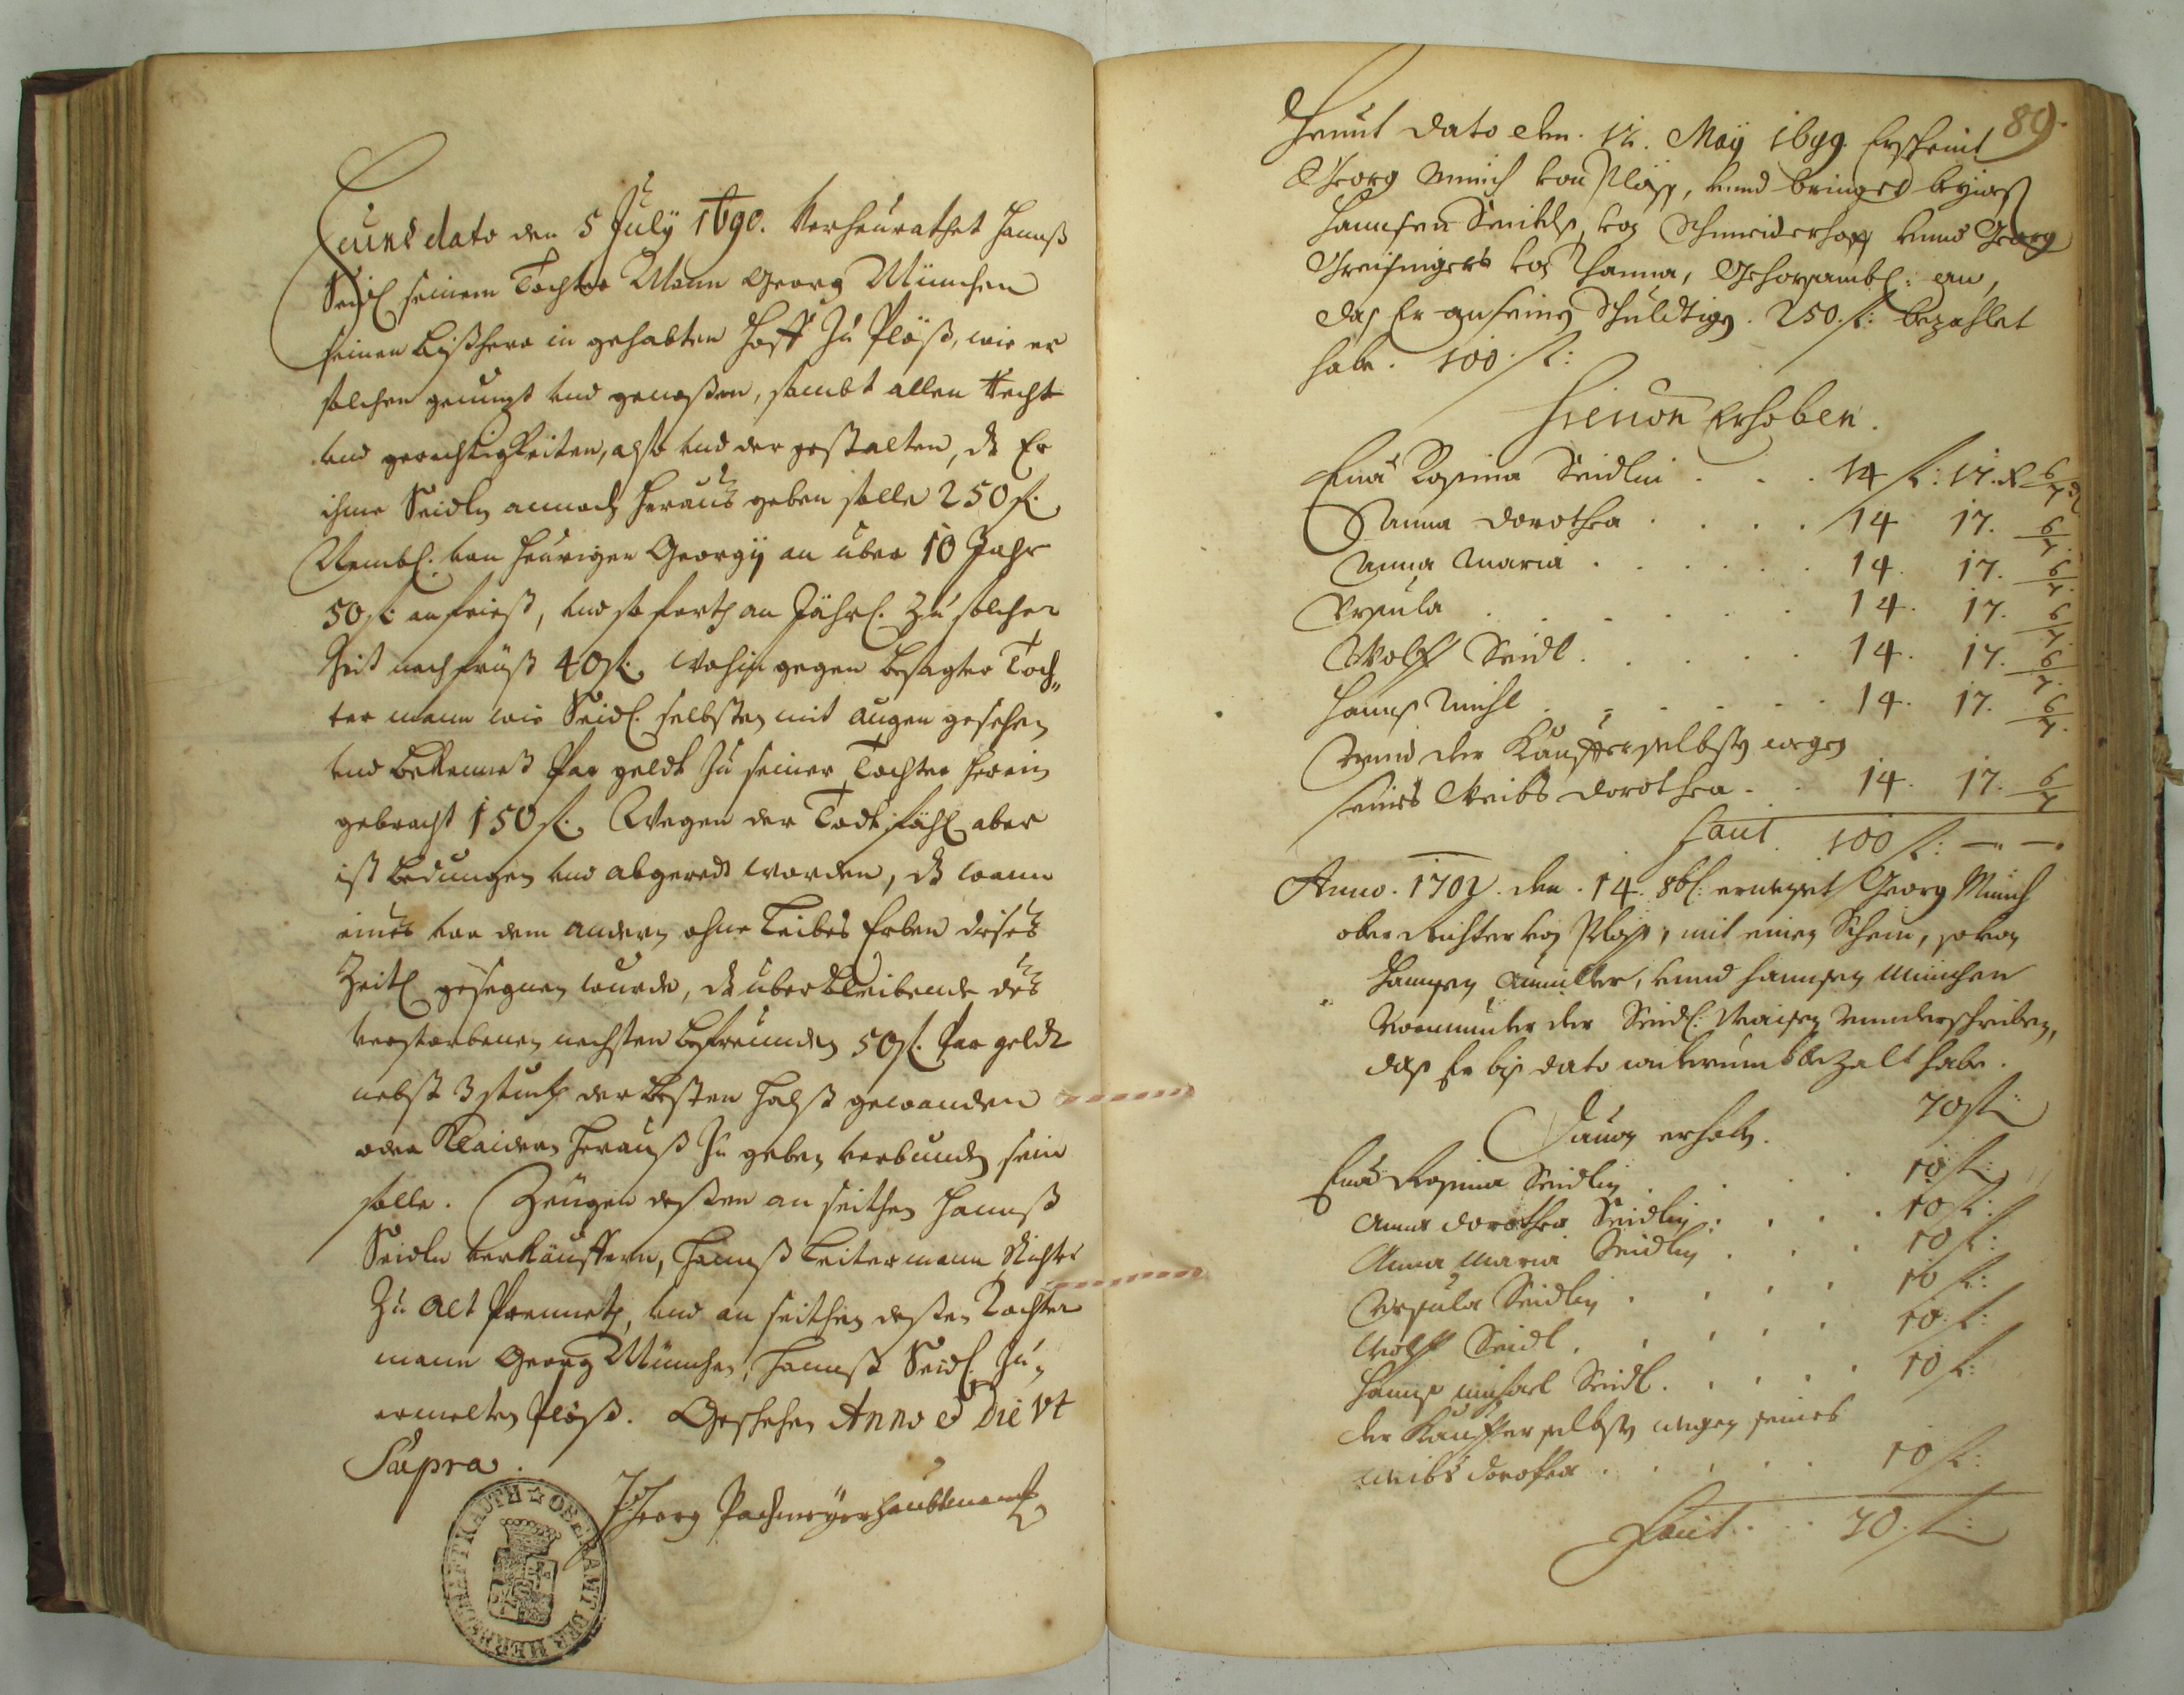 Heund dato den 5 July 1690. Verheurathet Hannß
Seidl seinem Tochter Mann Georg München
seinen bißhero in gehabten Hoff zu Plöß, wie er
solchen genunzt und genoßen, sambt allen Recht
und gerechtigkeiten, also und der gestalten, dz Er
ihme Seidln annoch heraus geben solle 250 fl.
Nembl. von heurigen Georgÿ an über 10 Jahr
50 fl. anfriest, und so forth an Jährl. zu solcher
Zeit nachfrüst 40 fl. Wohingegen besagter Toch„
ter mann wie Seidl. selbsten mit augen gesehen
und bekennet Par geldt zu seiner Tochter herein
gebracht 150 fl. Wegen der Todtsfähl aber
ist bedungen und abgeredt worden, dz wann
eines von dem andern ohne Leibes Erben dises
Zeitl. gesegnen wurde, dz überbleibende des
verstorbenen nechsten befreunden 50 fl. Par geldt
nebst 3 stuckh der besten Halß gewanden
oder Klaidern herauß zu geben verbunden sein
solle. Zeugen deßen an seithen Hannß
Seidln verkäuffern, Hannß Leitermann Richter
zu Alt Prennet, und an seithen deßen Tochter
mann Georg München, Hannß Seidl. zu
ermelten Plöß. Geschehen Anno et Die Vt
Supra.
JGeorg Pachmeyer haubtmann
OBERAMT DER HERRSCHAFT KAUTH
89.
Heunt dato den 12. Maÿ 1699. Erscheint
Georg Münich von Plöß, unnd bringet beÿ
Hannsen Seidls, von Schneiderhoff unnd Georg
von Thanna, Gehorsambl: an,
daß Er an seiner schuldtigen 250. fl: bezahlet
habe. 100 fl:
Hievon Erhoben.
Eva Rosina Seidlin . . . 14 fl: 17. x 6/7 d
Anna Dorothea . . . . 14 17. 6/7.
Anna Maria . . . . . . 14. 17. 6/7.
Vrsula . . . . . . 14. 17. 6/7.
Wolff Seidl . . . . . 14. 17. 6/7.
Hanns Michl . . . . . . 14. 17. 6/7.
Vnnd der Kauffer selbsten wegen
seines Weibs Dorothea . . 14. 17. 6/7
Facit. 100 fl: — —
Anno. 1702. den. 14. 8bl: Georg Münch
ober Richter von Plöß, mit einen Schein, so von
Hannsen, unnd Hannsen München
Vormünder der Seidl: Waisen unnderschriben,
daß Er biß dato widerumb bezalt habe.
70 fl:
Davon erhoben.
Eva Rosina Seidlin . . . 10 fl:
Anna Dorothea Seidlin . . . . 10 fl:
Anna Maria Seidlin . . . 10 fl:
Vrsula Seidlin . . . . 10 fl:
Wolff Seidl . . . . . 10. fl:
Hanns Michael Seidl . . . . . 10 fl:
der Kauffer selbsten wegen seines
Weibs Dorothea . . . . . 10 fl:
Facit . . . 70. fl: